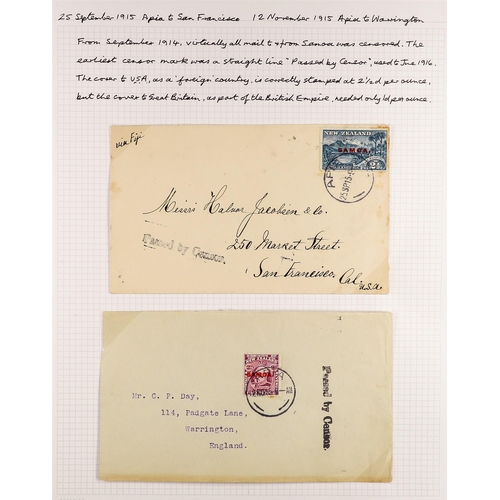 25 September 1915 Apia to San Francisco 12 November 1915 Apia to Warrington
From September 1914, virtually all mail to & from Samoa was censored. The
earliest censor mark was a straight line "Passed by Censor", used to June 1916.
The cover to USA, as a 'foreign' country, is correctly stamped at 2½d per ounce,
but the cover to Great Britain, as part of the British Empire, needed only 1d per ounce.
via Fiji
NEW ZEALAND
SAMOA
Messrs Halvor Jacobsen & Co.
250 Market Street.
San Francisco
Cal.
U.S.A.
Passed by Censor.
SAMOA
Mr. C. P. Day,
114, Padgate Lane,
Warrington,
England.
Passed by Censor.